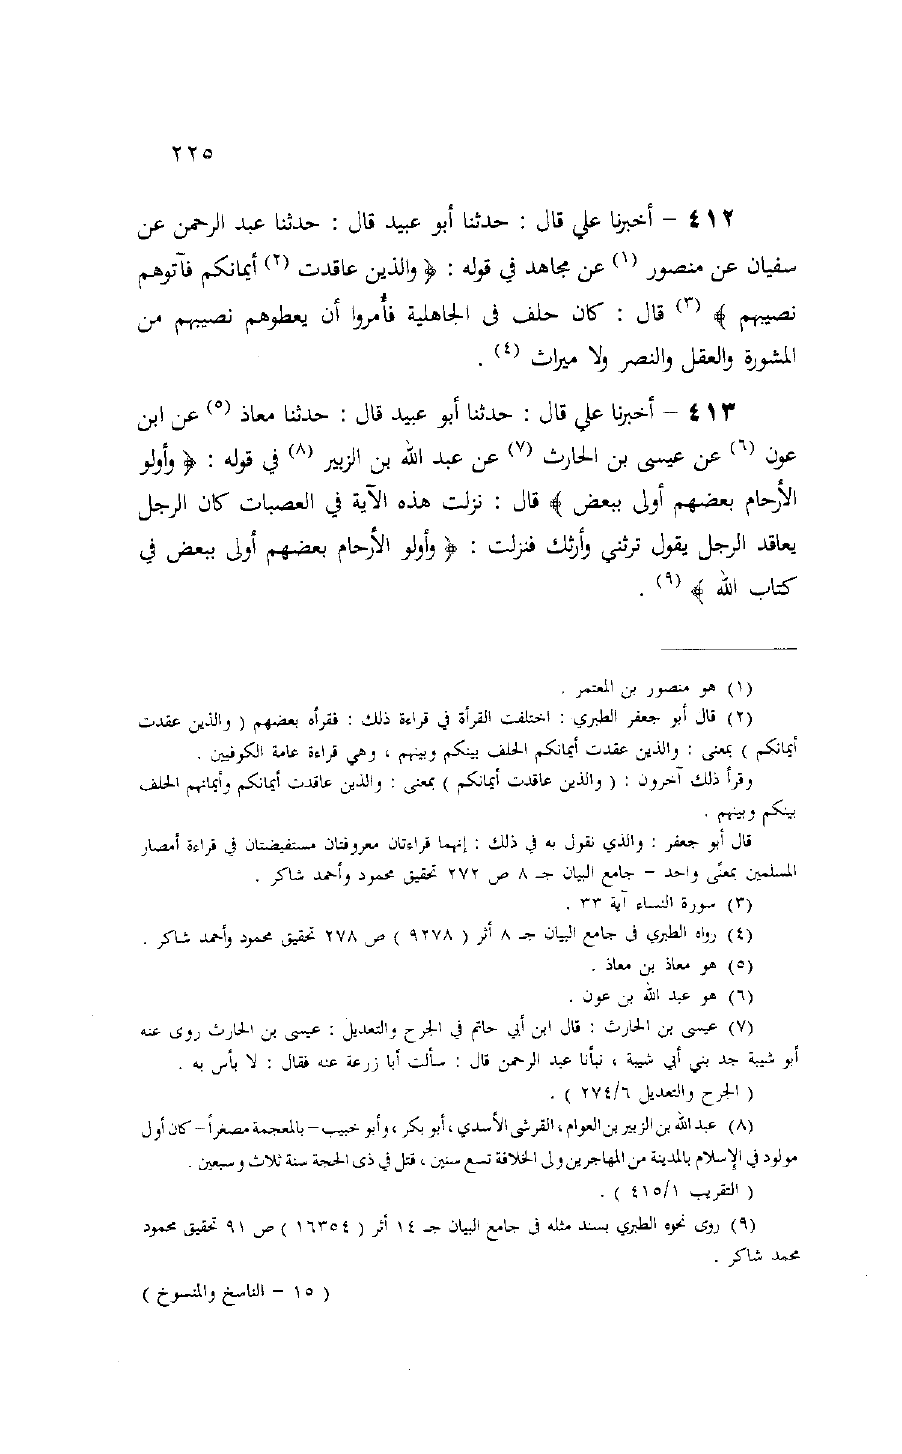 ٢٢٥
٤١٢ – أخبرنا علي قال : حدثنا أبو عبيد قال : حدثنا عبد الرحمن عن
سفيان عن منصور (١) عن مجاهد في قوله : ﴿ والذين عاقدت (٢) أيمانكم فآتوهم
نصيبهم ﴾ (٣) قال : كان حلف فى الجاهلية فأُمروا أن يعطوهم نصيبهم من
المشورة والعقل والنصر ولا ميراث (٤) .
٤١٣ – أخبرنا علي قال : حدثنا أبو عبيد قال : حدثنا معاذ (٥) عن ابن
عون (٦) عن عيسى بن الحارث (٧) عن عبد الله بن الزبير (٨) في قوله : ﴿ وأولو
الأرحام بعضهم أولى ببعض ﴾ قال : نزلت هذه الآية في العصبات كان الرجل
يعاقد الرجل يقول ترثني وأرثك فنزلت : ﴿ وأولو الأرحام بعضهم أولى ببعض في
كتاب الله ﴾ (٩) .
(١) هو منصور بن المعتمر .
(٢) قال أبو جعفر الطبري : اختلفت القرأة في قراءة ذلك : فقرأه بعضهم ( والذين عقدت
أيمانكم ) بمعنى : والذين عقدت أيمانكم الحلف بينكم وبينهم ، وهي قراءة عامة الكوفيين .
وقرأ ذلك آخرون : ( والذين عاقدت أيمانكم ) بمعنى : والذين عاقدت أيمانكم وأيمانهم الحلف
بينكم وبينهم .
قال أبو جعفر : والذي نقول به في ذلك : إنهما قراءتان معروفتان مستفيضتان في قراءة أمصار
المسلمين بمعنًى واحد – جامع البيان جـ ٨ ص ٢٧٢ تحقيق محمود وأحمد شاكر .
(٣) سورة النساء آية ٣٣ .
(٤) رواه الطبري فى جامع البيان جـ ٨ أثر ( ٩٢٧٨ ) ص ٢٧٨ تحقيق محمود وأحمد شاكر .
(٥) هو معاذ بن معاذ .
(٦) هو عبد الله بن عون .
(٧) عيسى بن الحارث : قال ابن أبي حاتم في الجرح والتعديل : عيسى بن الحارث روى عنه
أبو شيبة جد بني أبي شيبة ، نبأنا عبد الرحمن قال : سألت أبا زرعة عنه فقال : لا بأس به .
( الجرح والتعديل ٢٧٤/٦ ) .
(٨) عبد الله بن الزبير بن العوام ، القرشى الأسدي ، أبو بكر ، وأبو خبيب – بالمعجمة مصغراً – كان أول
مولود في الإسلام بالمدينة من المهاجرين ولى الخلافة تسع سنين ، قتل في ذى الحجة سنة ثلاث وسبعين .
( التقريب ٤١٥/١ ) .
(٩) روى نحوه الطبري بسند مثله فى جامع البيان جـ ١٤ أثر ( ١٦٣٥٤ ) ص ٩١ تحقيق محمود
محمد شاكر .
( ١٥ – الناسخ والمنسوخ )